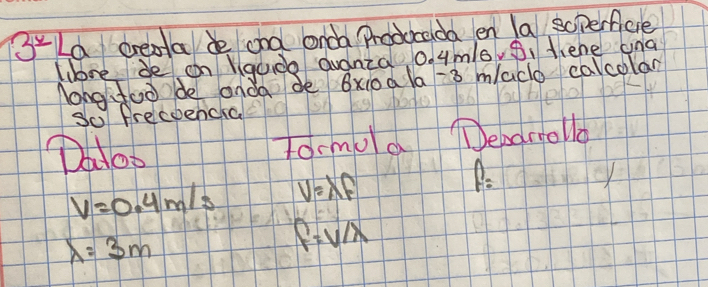 3ª La cresta de una onda Producida en la superficie
libre de un liquido avanza 0.4m/s, si tiene una
longitud de onda de 6x10 a la -3 m/ciclo calcolar
su frecuencia
Datos Formula Desarrollo
V=0.4m/s V=λf f=
λ=3m f=V/λ